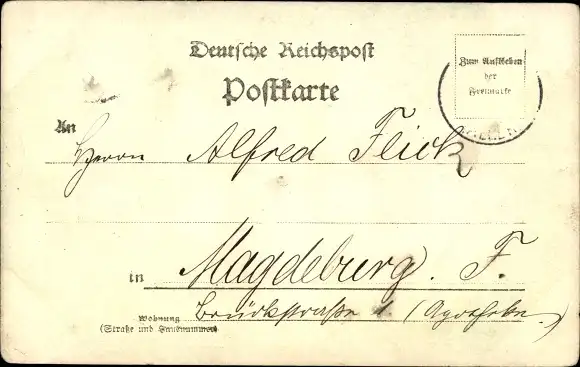 Deutsche Reichspost
Postkarte
Zum Aufkleben
der
Freimarke
An
Herrn Alfred Flick
in Magdeburg. F.
Wohnung Brückstraße 1. (Apotheke.)
(Straße und Hausnummer)